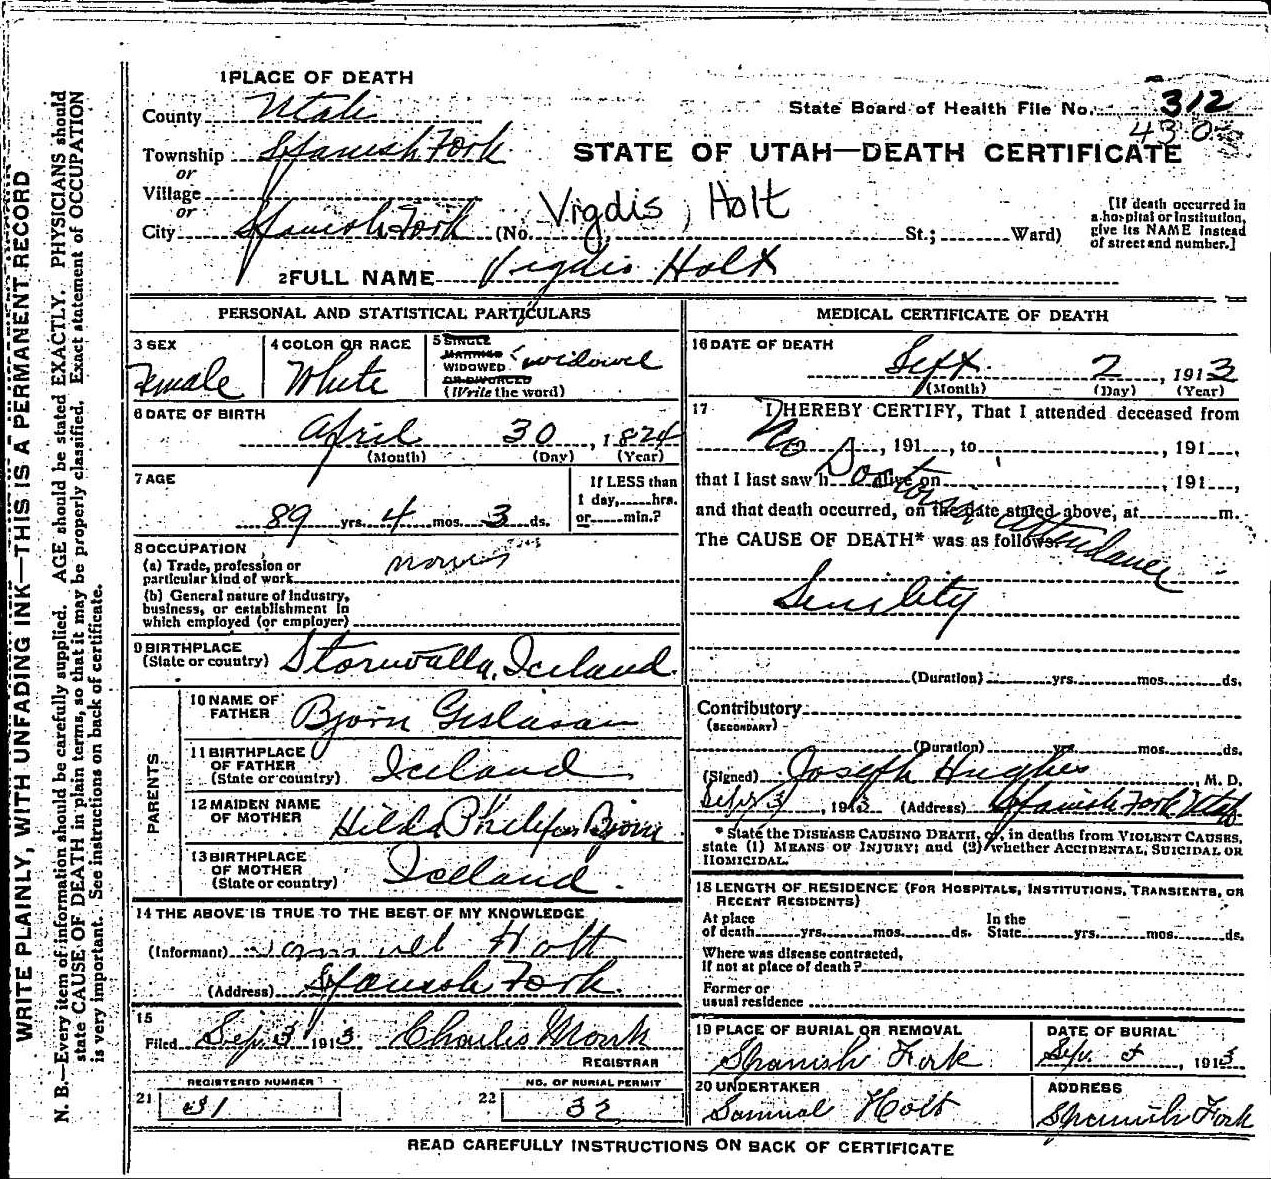 WRITE PLAINLY, WITH UNFADING INK—THIS IS A PERMANENT RECORD
N. B.—Every item of information should be carefully supplied. AGE should be stated EXACTLY. PHYSICIANS should
state CAUSE OF DEATH in plain terms, so that it may be properly classified. Exact statement of OCCUPATION
is very important. See instructions on back of certificate.
1 PLACE OF DEATH
County Utah
State Board of Health File No. 312
430
Township Spanish Fork
or
STATE OF UTAH—DEATH CERTIFICATE
Village
or
Virgdis, Holt
City Spanish Fork (No. St.; Ward)
[If death occurred in
a hospital or institution,
give its NAME instead
of street and number.]
2 FULL NAME Virgdis Holt
PERSONAL AND STATISTICAL PARTICULARS
3 SEX
Female
4 COLOR OR RACE
White
5 SINGLE
MARRIED
WIDOWED
OR DIVORCED
(Write the word)
widowed
6 DATE OF BIRTH
April 30, 1824
(Month) (Day) (Year)
7 AGE
89 yrs. 4 mos. 3 ds.
If LESS than
1 day, hrs.
or min.?
8 OCCUPATION
(a) Trade, profession or
particular kind of work
(b) General nature of industry,
business, or establishment in
which employed (or employer)
9 BIRTHPLACE
(State or country) Iceland
PARENTS
10 NAME OF
FATHER Bjorn Gislason
11 BIRTHPLACE
OF FATHER
(State or country) Iceland
12 MAIDEN NAME
OF MOTHER Hilda
13 BIRTHPLACE
OF MOTHER
(State or country) Iceland.
14 THE ABOVE IS TRUE TO THE BEST OF MY KNOWLEDGE
(Informant) Holt
(Address) Spanish Fork.
15
Filed Sep. 3 1913 Charles Monk
REGISTRAR
REGISTERED NUMBER
21
NO. OF BURIAL PERMIT
22 32
MEDICAL CERTIFICATE OF DEATH
16 DATE OF DEATH
Sept. 2, 1913
(Month) (Day) (Year)
17 I HEREBY CERTIFY, That I attended deceased from
, 191 , to , 191 ,
that I last saw h alive on , 191 ,
and that death occurred, on the date stated above, at m.
The CAUSE OF DEATH* was as follows:
No Doctors in attendance
Senility
(Duration) yrs. mos. ds.
Contributory
(SECONDARY)
(Duration) yrs. mos. ds.
(Signed) Joseph Hughes, M. D.
Sept 3, 1913 (Address) Spanish Fork Utah
* State the DISEASE CAUSING DEATH, or, in deaths from VIOLENT CAUSES,
state (1) MEANS OF INJURY; and (2) whether ACCIDENTAL, SUICIDAL OR
HOMICIDAL.
18 LENGTH OF RESIDENCE (FOR HOSPITALS, INSTITUTIONS, TRANSIENTS, OR
RECENT RESIDENTS)
At place
of death yrs. mos. ds.
In the
State yrs. mos. ds.
Where was disease contracted,
if not at place of death?
Former or
usual residence
19 PLACE OF BURIAL OR REMOVAL
Spanish Fork
DATE OF BURIAL
Sep. , 1913
20 UNDERTAKER
Samual Holt
ADDRESS
Spanish Fork
READ CAREFULLY INSTRUCTIONS ON BACK OF CERTIFICATE